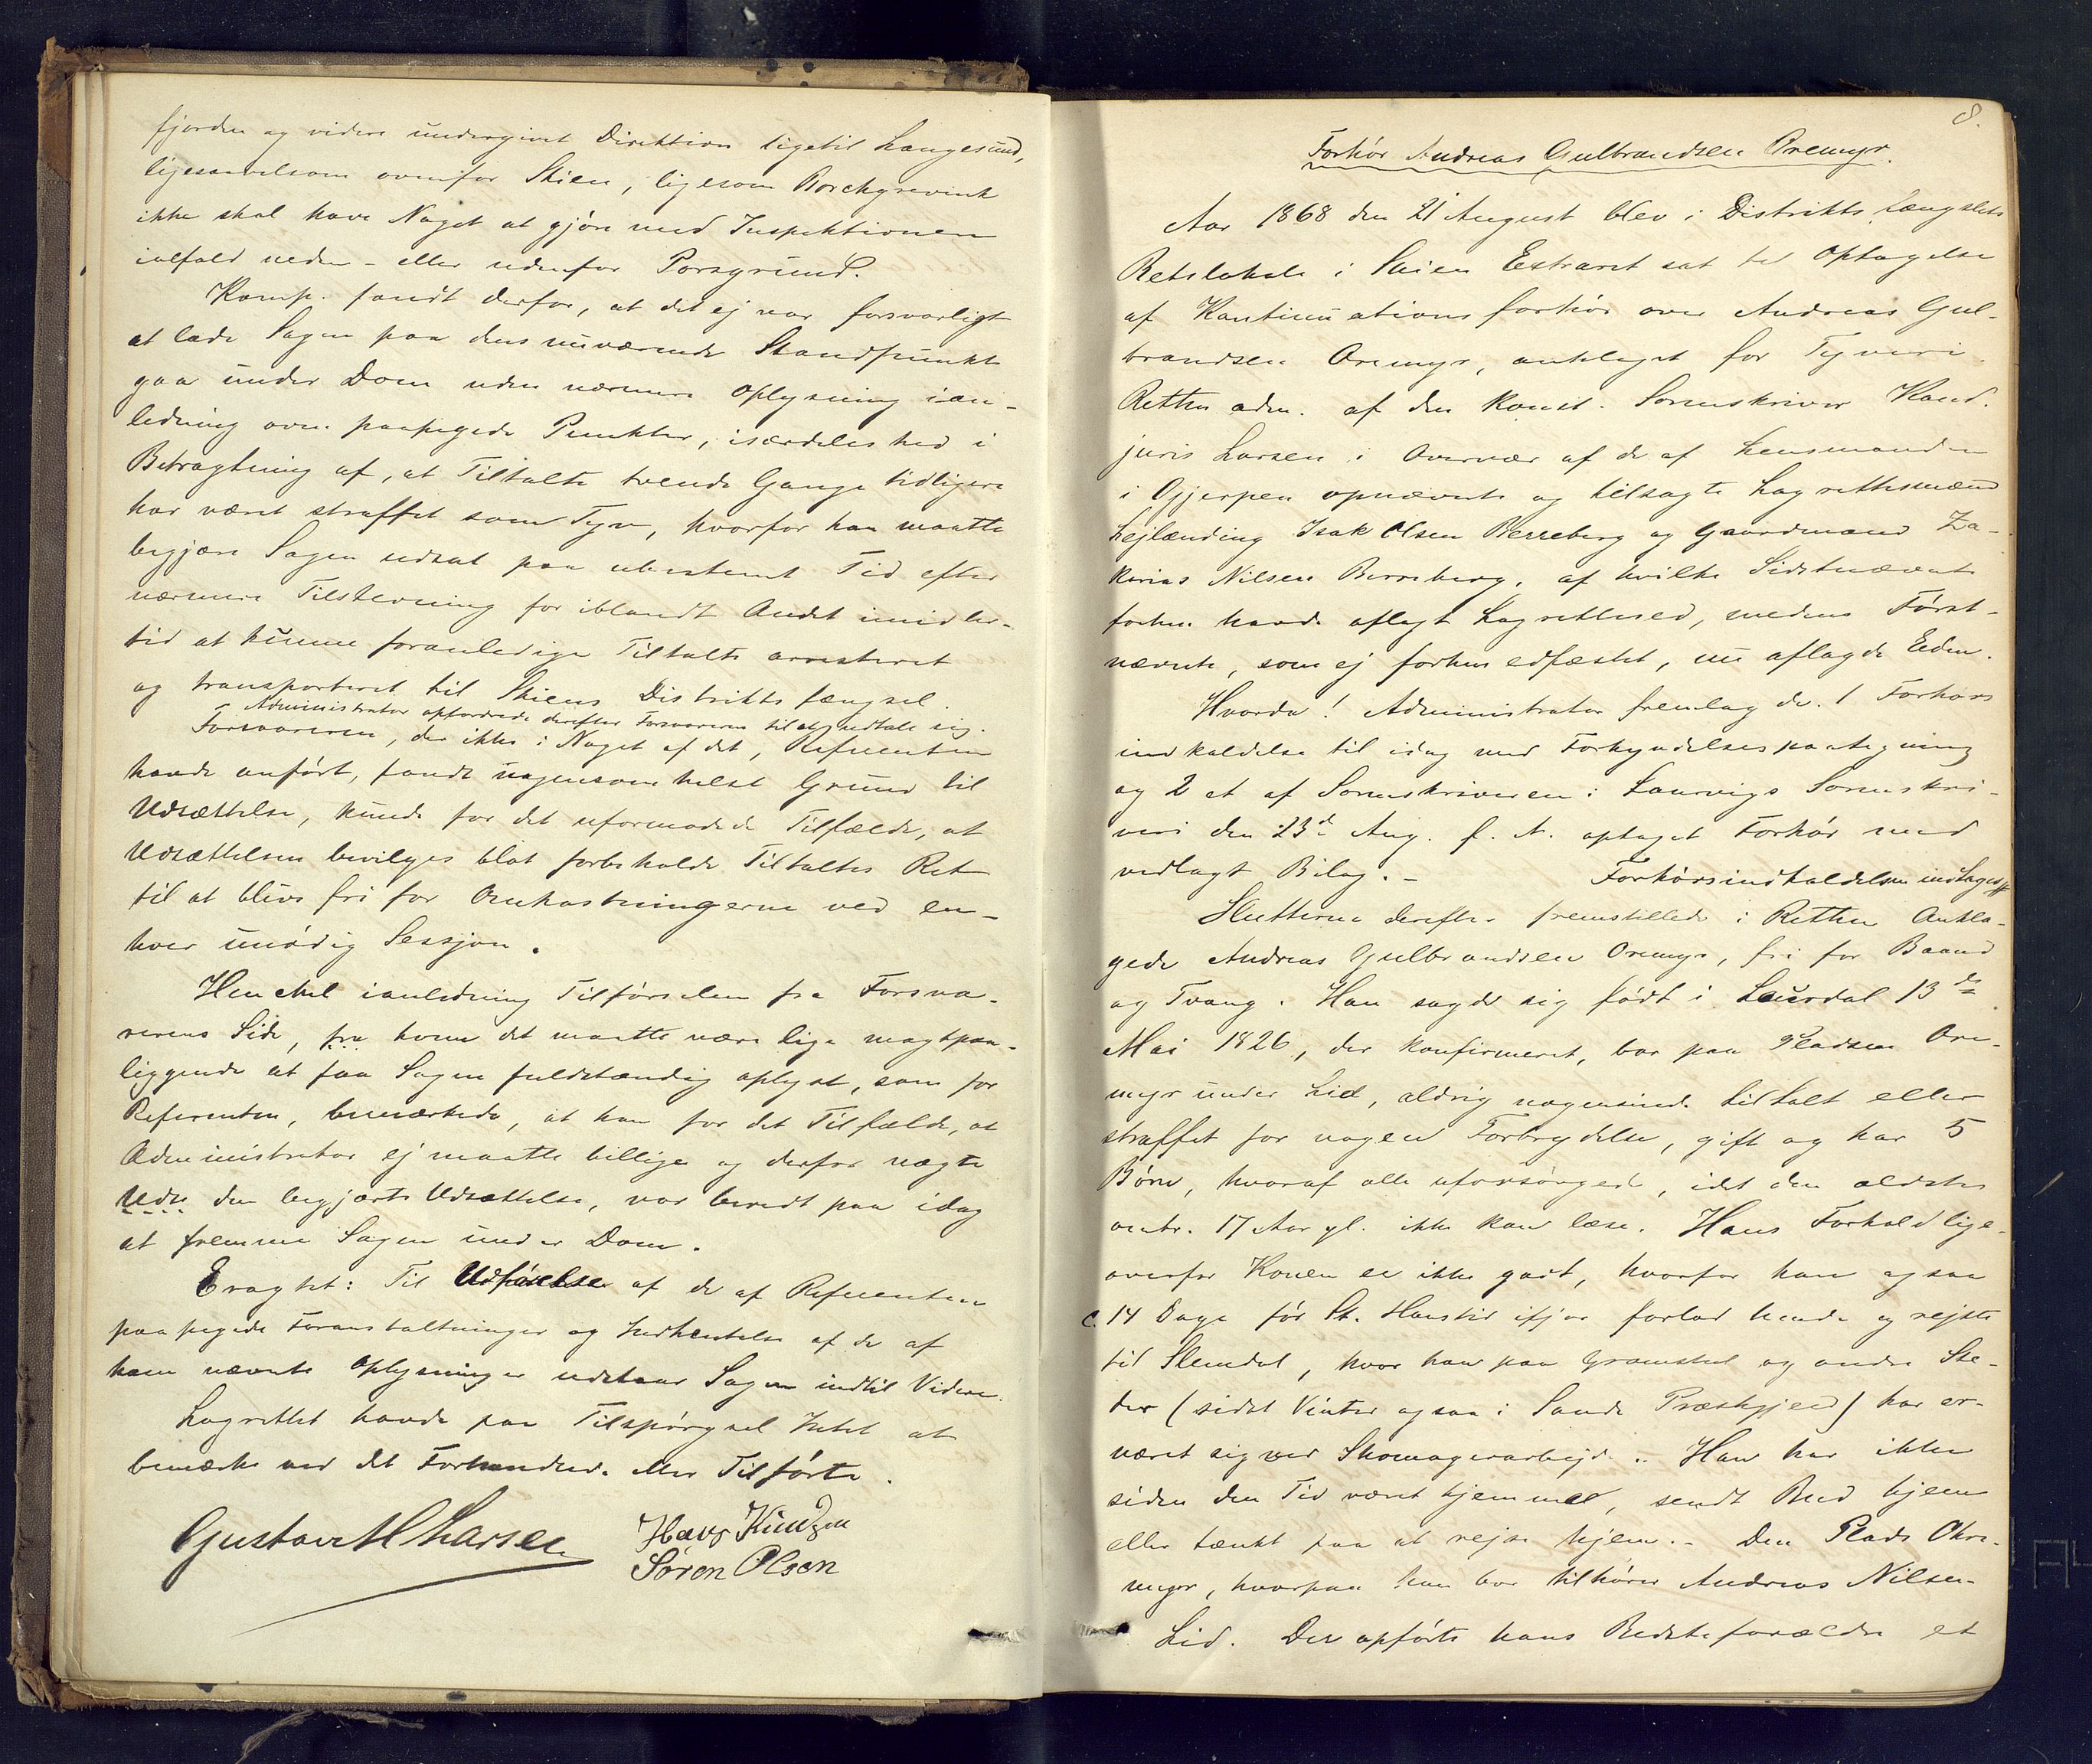 fjorden og videre undergivet Direktion ligetil Langesund,
ligesaavelsom ovenfor Skien, ligesom Borchgrevink
ikke skal have Noget at gjøre med Inspektionen
ialfald neden- eller udenfor Porsgrund.
Komp. fandt derfor, at det ej var forsvarligt
at lade Sagen paa dens nuværende Standpunkt
gaa under Dom uden nærmere Oplysning ian-
ledning oven paapegede Punkter, isærdeleshed i
Betragtning af, at Tiltalte tvende Gange tidligere
har været straffet som Tyv, hvorfor han maatte
begjære Sagen udsat paa ubestemt Tid efter
nærmere Tilstevning for iblandt Andet imidler-
tid at kunne foranledige Tiltalte arresteret
og transporteret til Skiens Distriktsfængsel.
Administrator opfordrede derefter Forsvareren til at udtale sig.
Forsvareren, der ikke i Noget af det, Referenten
havde anført, fandt nogensomhelst Grund til
Udsættelse, kunde for det uformodede Tilfælde, at
Udsættelsen bevilges blot forbeholde Tiltaltes Ret
til at blive fri for Omkostningerne ved en-
hver unødig Sessjon.
Henchel ianledning Tilførselen fra Forsva-
rerens Side, fra hvem det maatte være lige magtpaa-
liggende at faa Sagen fuldstændig oplyst, som for
Referenten, bemærkede, at han for det Tilfælde, at
Administrator ej maatte billige og derfor nægte
Uds den begjærte Udsættelse, var beredt paa idag
at fremme Sagen under Dom.
Eragtet: Til Udførelse af de af Referenten
paapegede Foranstaltninger og Indhentelse af de af
ham nævnte Oplysninger udstaar Sagen indtil Videre.
Lagrettet havde paa Tilspørgsel Intet at
bemærke ved det Forhandlede eller Tilførte.
Gustav H Larsen
Hans Knudsen
Søren Olsen
8.
Forhør Andreas Gulbrandsen Oremyr.
Aar 1868 den 21 August blev i Distriktsfængslets
Retslokale i Skien Extraret sat til Optagelse
af Kontinuationsforhør over Andreas Gul-
brandsen Oremyr, anklaget for Tyveri.
Retten adm. af den konst. Sorenskriver Kand.
juris Larsen i Overvær af de af Lensmanden
i Gjerpen opnævnte og tilsagte Lagrettesmænd
Lejlænding Isak Olsen Berreberg og Gaardmand Za-
karias Nilsen Berreberg, af hvilke Sidstnævnte
forhen havde aflagt Lagrettesed, medens Først-
nævnte, som ej forhen edfæstet, nu aflagde Eden.
Hvorda! Administrator fremlagde 1 Forhørs
indkaldelse til idag med Forkyndelsespaategning
og 2 et af Sorenskriveren i Laurvigs Sorenskri-
veri den 13de Aug. f. A. optaget Forhør med
vedlagt Bilag. - Forhørsindkaldelsen indtages
Slutteren derefter fremstillede i Retten Ankla-
gede Andreas Gulbrandsen Oremyr, fri for Baand
og Tvang. Han sagde sig født i Laurdal 13de
Mai 1826, der konfirmeret, bor paa Pladsen Ore-
myr under Lid, aldrig nogensinde tiltalt eller
straffet for nogen Forbrydelse, gift og har 5
Børn, hvoraf alle uforsørgede, idet den ældste
omtr. 17 Aar gl. ikke kan læse. Hans Forhold lige-
overfor Konen er ikke godt, hvorfor han ogsaa
c. 14 Dage før St. Hanstid ifjor forlod hende og rejste
til Slemdal, hvor han paa Gromstul og andre Ste-
der (sidst Vinter ogsaa i Sande Præstegjeld) har er-
næret sig ved Skomagerarbejde. Han har ikke
siden den Tid været hjemme, sendt Bud hjem
eller tænkt paa at rejse hjem. - Den Plads Ore-
myr, hvorpaa han bor tilhører Andreas Nilsen
Lid. Der opførte hans Bedsteforældre et